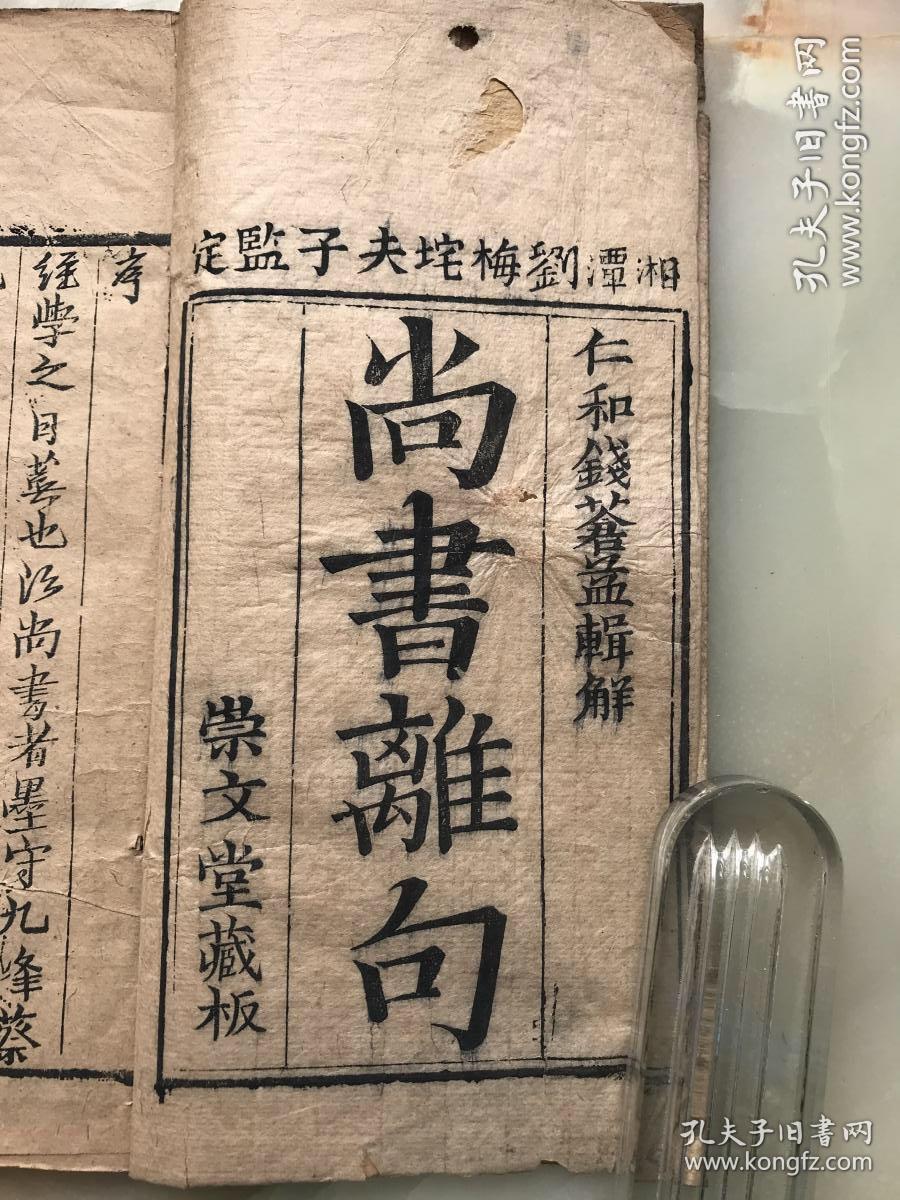 湘潭劉梅垞夫子監定
仁和錢蒼益輯解
尚書離句
崇文堂藏板
序
經學之日蕪也治尚書者墨守九峰蔡
孔夫子旧书网
www.kongfz.com
孔夫子旧书网
www.kongfz.com